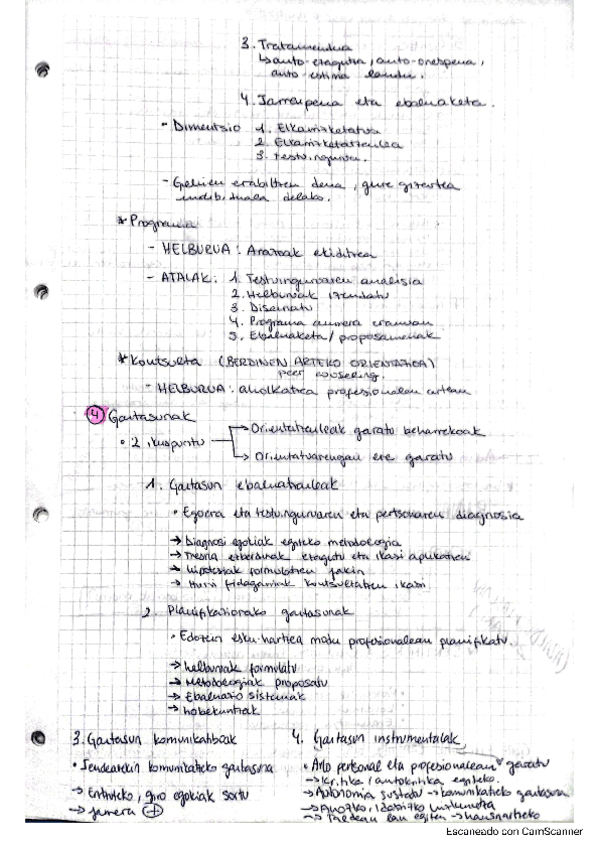 3. Tratamendua
↳ auto-ezagutza, auto-onespena,
auto estima landu.
4. Jarraipena eta ebaluaketa.
- Dimentsio 1. Elkarrizketatua
2. Elkarrizketatzailea
3. Testuingurua.
- Gehien erabiltzen dena, gure gizartea
indibiduala delako.
* Programa
- HELBURUA: Arazoak ekiditea
- ATALAK: 1. Testuinguruaren analisia
2. Helburuak izendatu
3. Diseinatu
4. Programa aurrera eraman
5. Ebaluaketa / proposamenak
* Kontsulta (BERDINEN ARTEKO ORIENTAZIOA)
peer couseling.
- HELBURUA: aholkatzea profesionalen artean
4 Gaitasunak
• 2 ikuspuntu → Orientatzaileak garatu beharrekoak
→ Orientatuarengan ere garatu
1. Gaitasun ebaluatzaileak
• Egoera eta testuinguruaren eta pertsonaren diagnosia
→ Diagnosi egokiak egiteko metodologia
→ Tresna ezberdinak ezagutu eta ikasi aplikatzen
→ Hipotesiak formulatzen jakin
→ Iturri fidagarriak kontsultatzen ikasi
2. Planifikaziorako gaitasunak
• Edozein esku-hartzea modu profesionalean planifikatu.
→ helburuak formulatu
→ Metodologiak proposatu
→ Ebaluazio sistemak
→ hobekuntzak
3. Gaitasun komunikatiboak
• Jendearekin komunikatzeko gaitasuna
→ Entzuteko, giro egokiak sortu
→ jarrera +
4. Gaitasun instrumentalak
• Arlo pertsonal eta profesionalean garatu
→ kritika / autokritika egiteko.
→ Autonomia sustatu → komunikatzeko gaitasuna
→ Taldean lan egiten → hausnartzeko
Escaneado con CamScanner